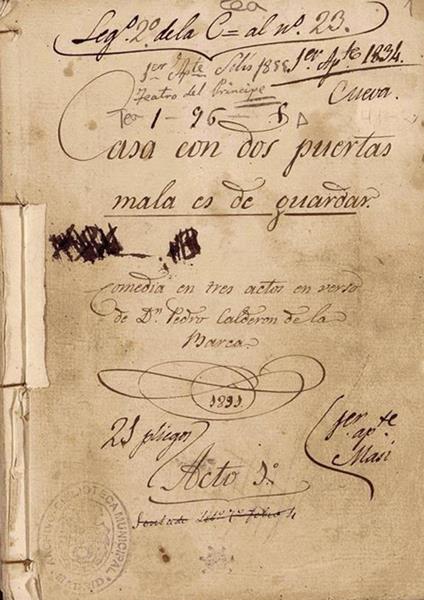 Tea
1
Leg.º 2.º de la C= al nº. 23.
1er Apte Solis 1838. 1er Apte 1834.
Teatro del Príncipe
Cueva.
Tea 1-96-8 A
Casa con dos puertas
mala es de guardar.
Comedia en tres actos en verso
de Dn. Pedro Calderon de la
Barca.
1831.
21 pliegos
1er. apte
Masi
Acto 1º
BIBLIOTECA MUNICIPAL